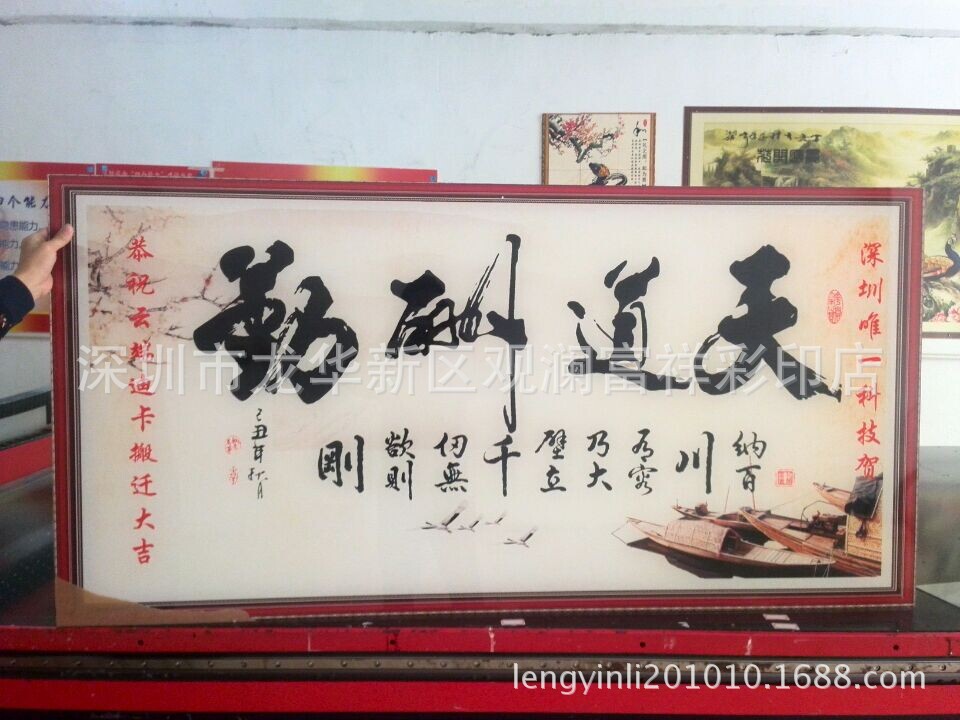 天道酬勤
纳百川 有容乃大
壁立千仞 無欲则剛
己丑年秋月
深圳唯一科技贺
恭祝云 迪卡搬迁大吉
深圳市龙华新区观澜富祥彩印店
个能力
能力
能力
lengyinli201010.1688.com